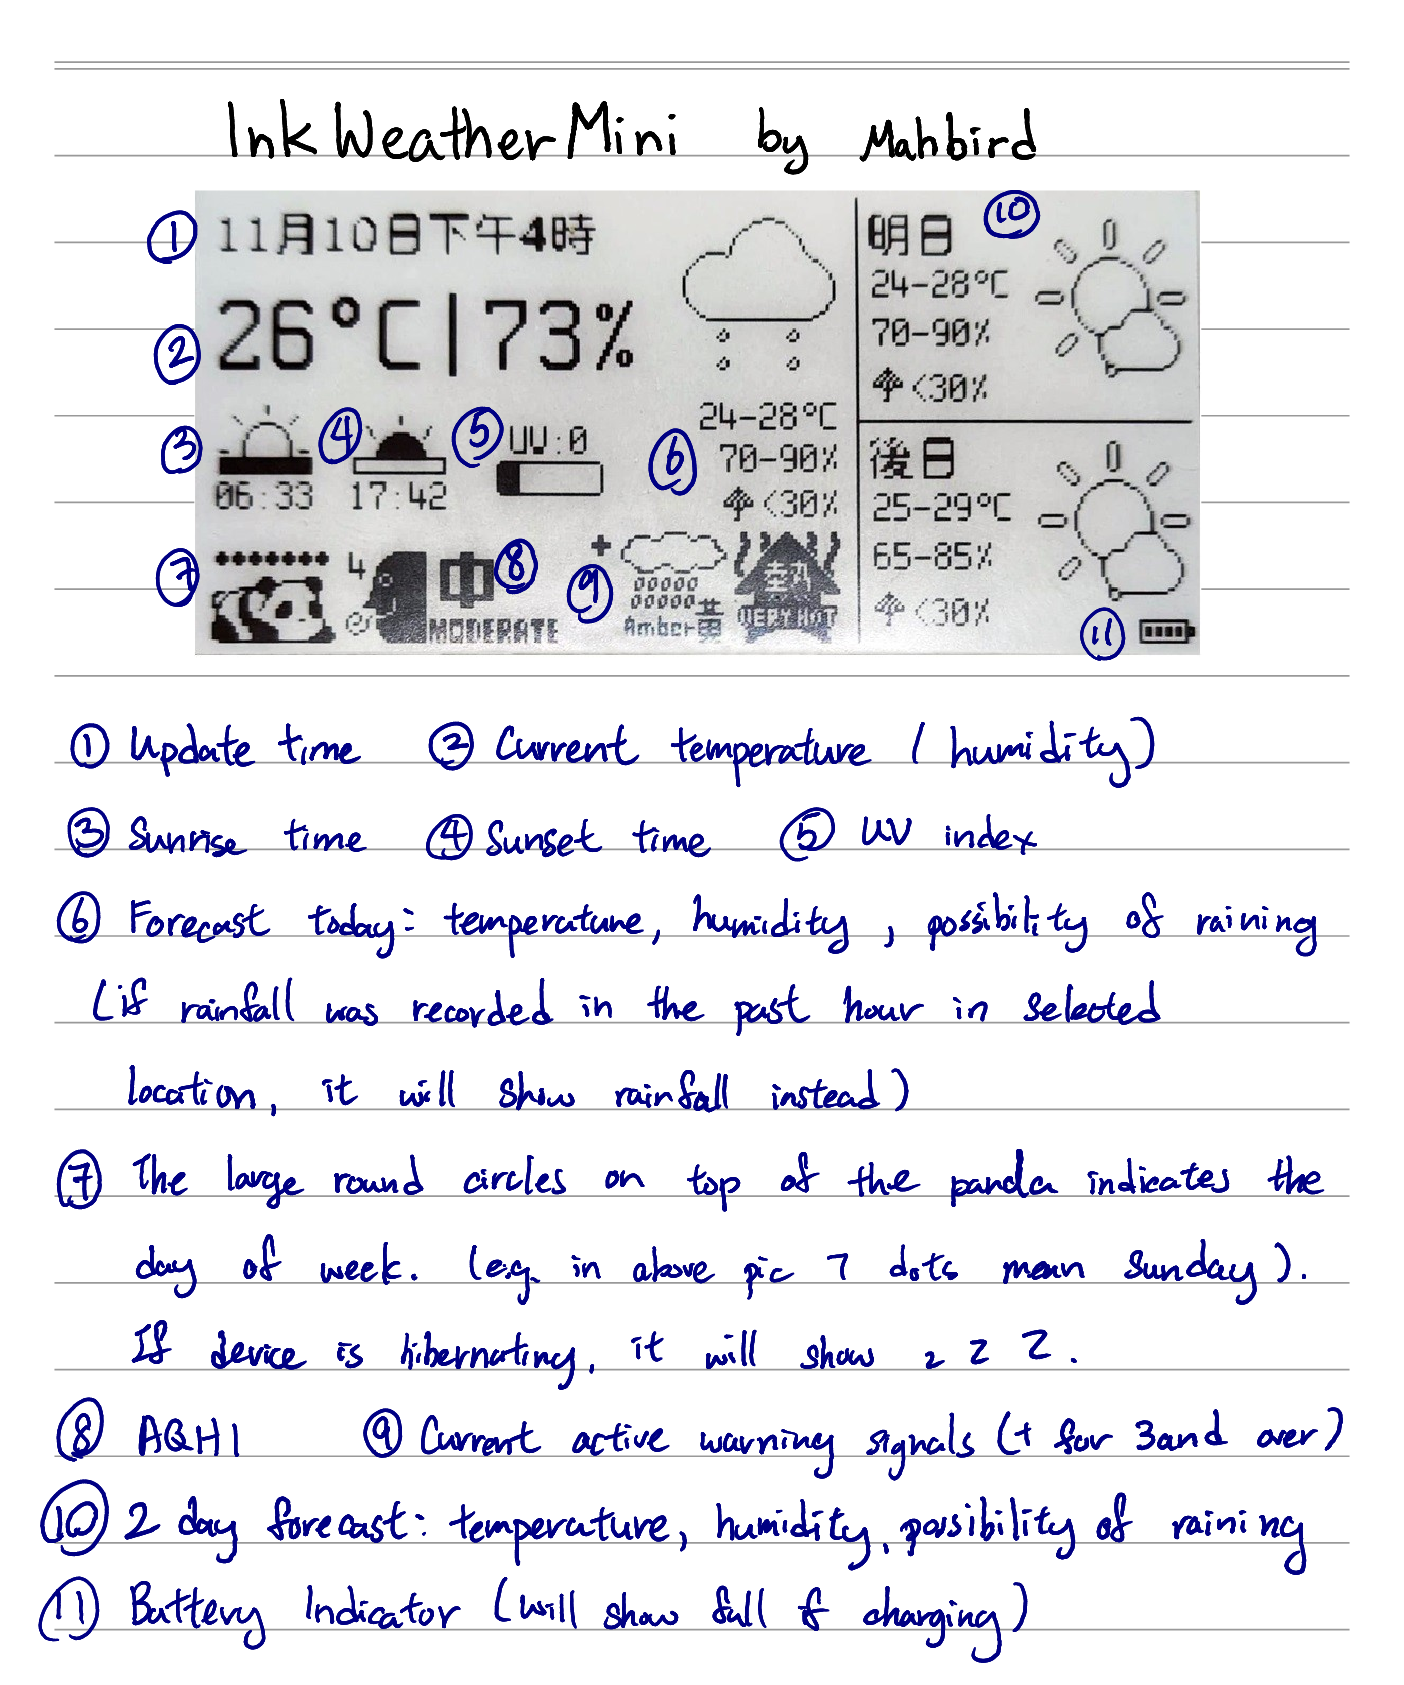 InkWeatherMini by Mahbird
① 11月10日下午4時
② 26°C|73%
③ 06:33
④ 17:42
⑤ UV:0
⑥ 24-28°C
70-90%
<30%
⑦
4 中 ⑧
MODERATE
⑨ +
Amber 黃
VERY HOT
明日 ⑩
24-28°C
70-90%
<30%
後日
25-29°C
65-85%
<30%
⑪
① Update time ② Current temperature (humidity)
③ Sunrise time ④ Sunset time ⑤ UV index
⑥ Forecast today: temperature, humidity, possibility of raining
(if rainfall was recorded in the past hour in selected
location, it will show rainfall instead)
⑦ The large round circles on top of the panda indicates the
day of week. (e.g. in above pic 7 dots mean Sunday).
If device is hibernating, it will show z z z.
⑧ AQHI ⑨ Current active warning signals (+ for 3 and over)
⑩ 2 day forecast: temperature, humidity, possibility of raining
⑪ Battery Indicator (will show full if charging)